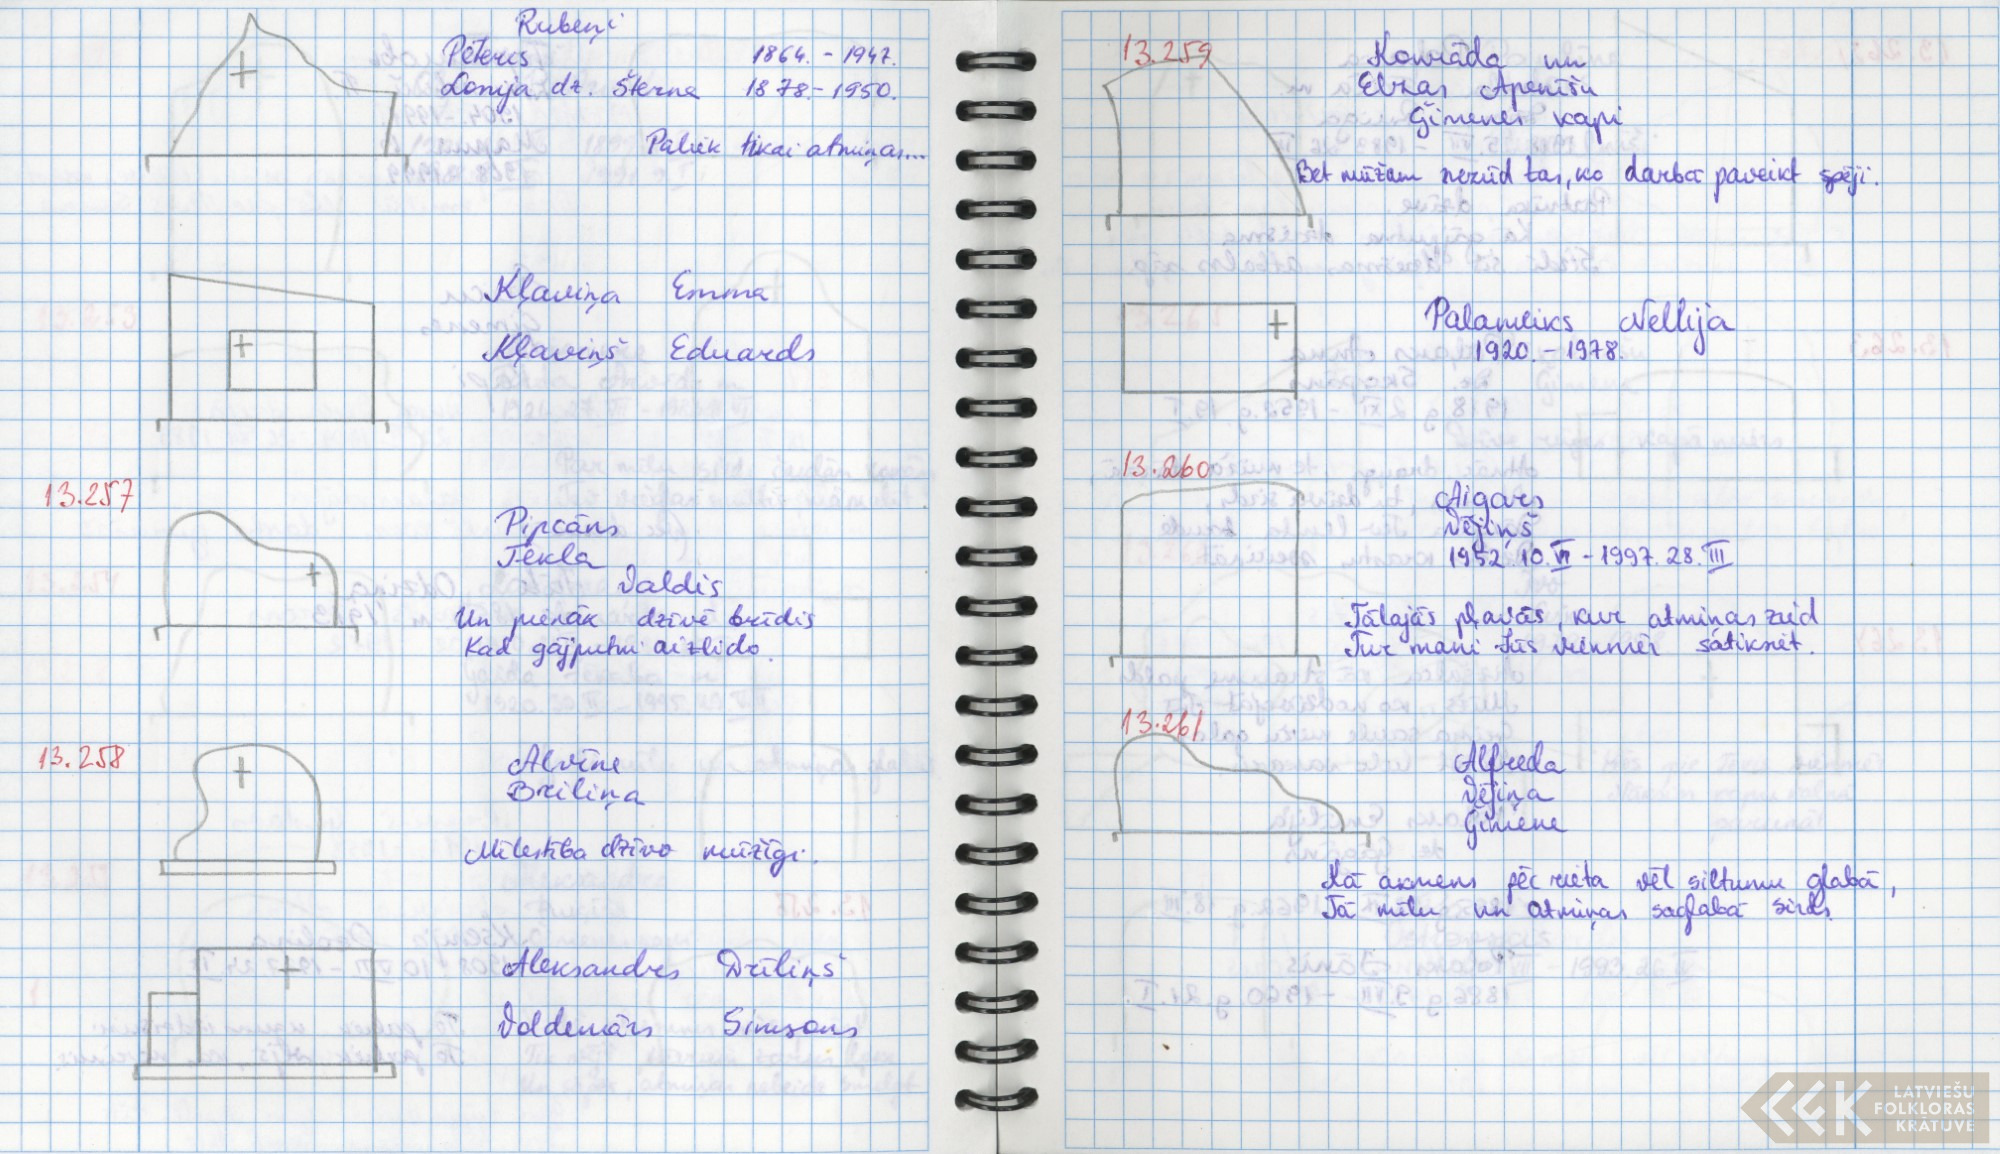 Rubeņi
Pēteris 1864. - 1947.
Lonija dz. Šterna 1878. - 1950.
Paliek tikai atmiņas...
Kļaviņa Emma
Kļaviņš Eduards
13.257
Pipcāns
Tekla
Valdis
Un pienāk dzīvē brīdis
Kad gājputni aizlido.
13.258
Alvīne
Briliņa
Mīlestība dzīvo mūžīgi.
Aleksandrs Driliņš
Voldemārs Simsons
13.259
Konrāda un
Elzas Apenīšu
Ģimenes kapi
Bet mūžam nezūd tas, ko darbā paveikt spēji.
Palameiks Nellija
1920. - 1978.
13.260
Aigars
Vējiņš
1952. 10. VI - 1997. 28. III
Tālajās pļavās, kur atmiņas zied
Tur mani Jūs vienmēr satiksiet.
13.261
Alfreda
Vējiņa
Ģimene
Kā akmens pēc rieta vēl siltumu glabā,
Tā mīlu un atmiņas saglabā sirds.
LATVIEŠU
FOLKLORAS
KRĀTUVE